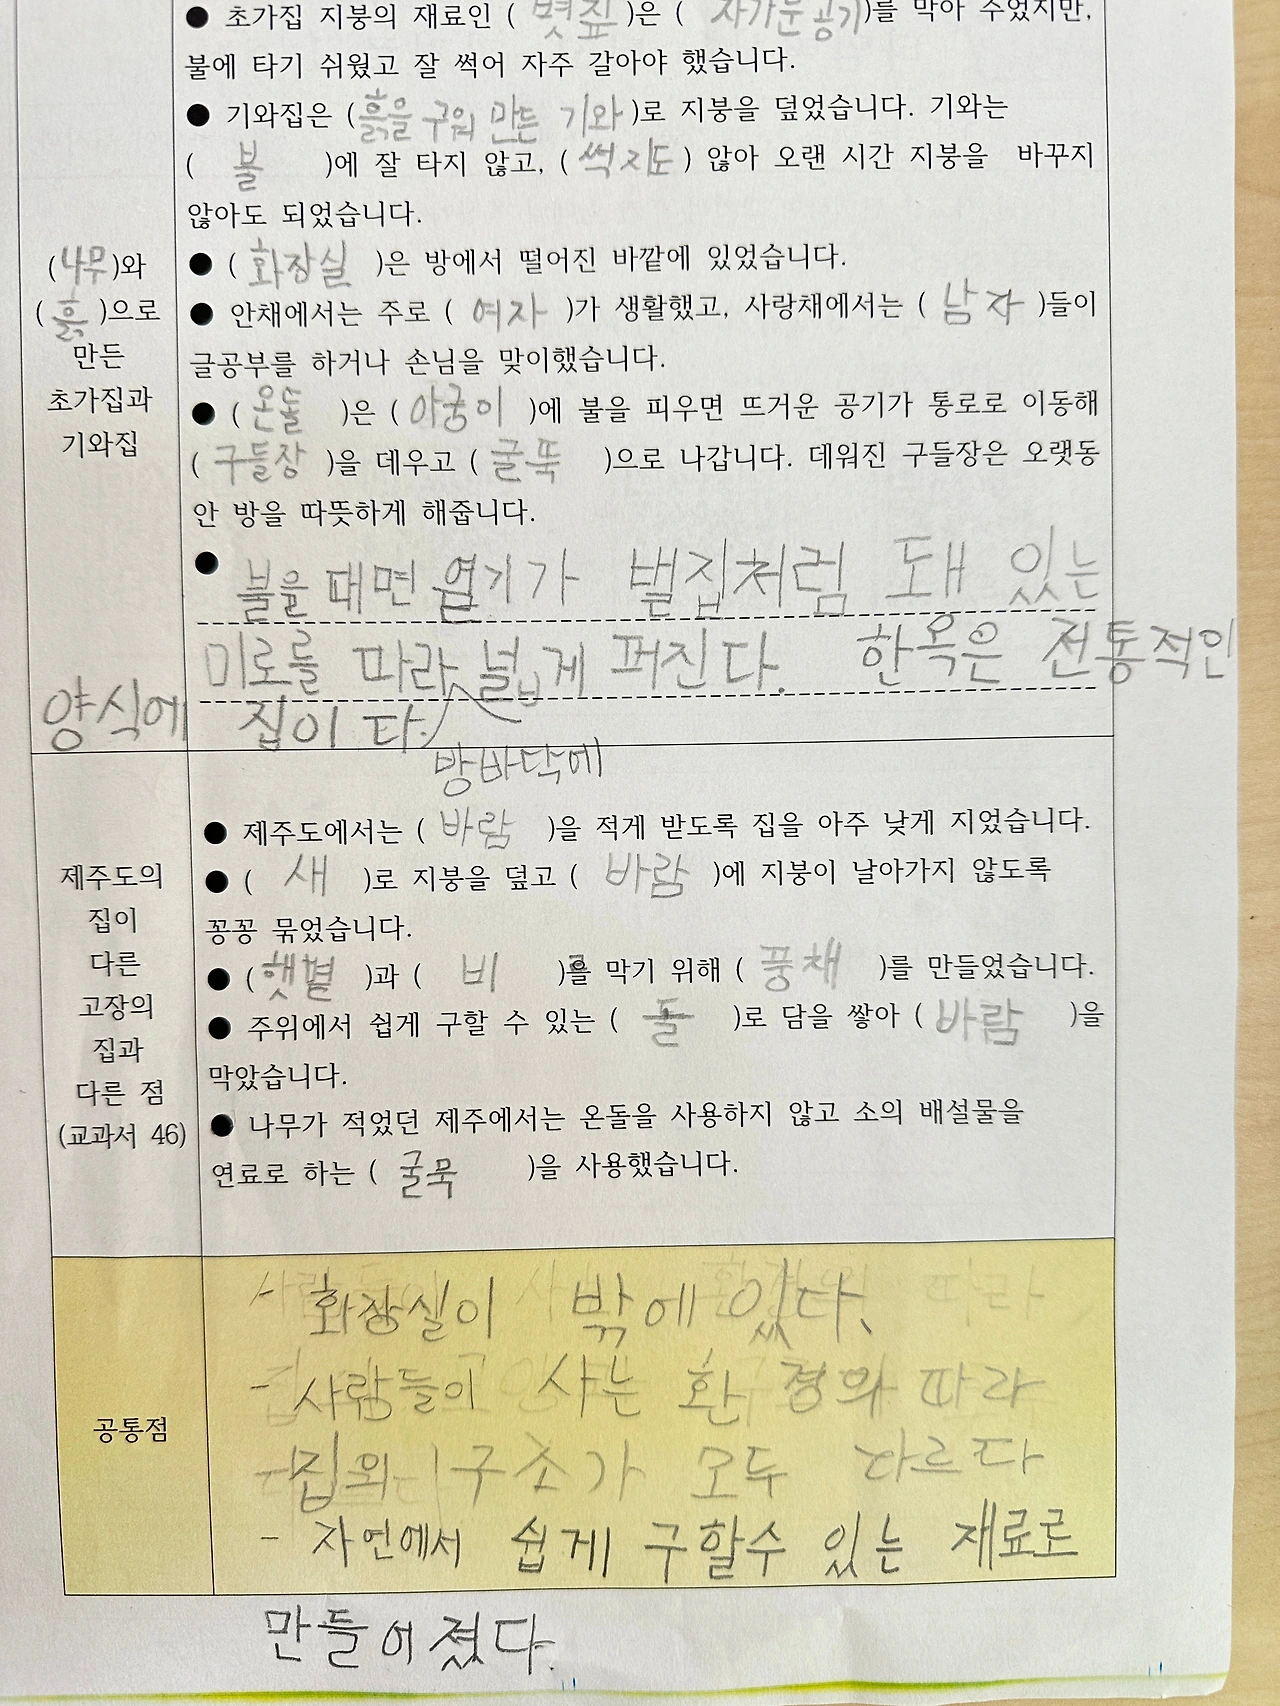 ● 초가집 지붕의 재료인 ( 볏짚 )은 ( 차가운 공기)를 막아 주었지만,
불에 타기 쉬웠고 잘 썩어 자주 갈아야 했습니다.
● 기와집은 (흙을 구워 만든 기와)로 지붕을 덮었습니다. 기와는
( 불 )에 잘 타지 않고, ( 썩지도 ) 않아 오랜 시간 지붕을 바꾸지
않아도 되었습니다.
(나무)와
( 흙 )으로
만든
초가집과
기와집
● ( 화장실 )은 방에서 떨어진 바깥에 있었습니다.
● 안채에서는 주로 ( 여자 )가 생활했고, 사랑채에서는 ( 남자 )들이
글공부를 하거나 손님을 맞이했습니다.
● ( 온돌 )은 ( 아궁이 )에 불을 피우면 뜨거운 공기가 통로로 이동해
( 구들장 )을 데우고 ( 굴뚝 )으로 나갑니다. 데워진 구들장은 오랫동
안 방을 따뜻하게 해줍니다.
● 불을 때면 열기가 벌집처럼 돼 있는
미로를 따라 넓게 퍼진다. 한옥은 전통적인
양식에 집이다.
방바닥에
제주도의
집이
다른
고장의
집과
다른 점
(교과서 46)
● 제주도에서는 ( 바람 )을 적게 받도록 집을 아주 낮게 지었습니다.
● ( 새 )로 지붕을 덮고 ( 바람 )에 지붕이 날아가지 않도록
꽁꽁 묶었습니다.
● (햇볕 )과 ( 비 )를 막기 위해 ( 풍채 )를 만들었습니다.
● 주위에서 쉽게 구할 수 있는 ( 돌 )로 담을 쌓아 ( 바람 )을
막았습니다.
● 나무가 적었던 제주에서는 온돌을 사용하지 않고 소의 배설물을
연료로 하는 ( 굴묵 )을 사용했습니다.
공통점
- 화장실이 밖에 있다.
- 사람들이 사는 환경의 따라
집의 구조가 모두 다르다
- 자연에서 쉽게 구할수 있는 재료로
만들어졌다.